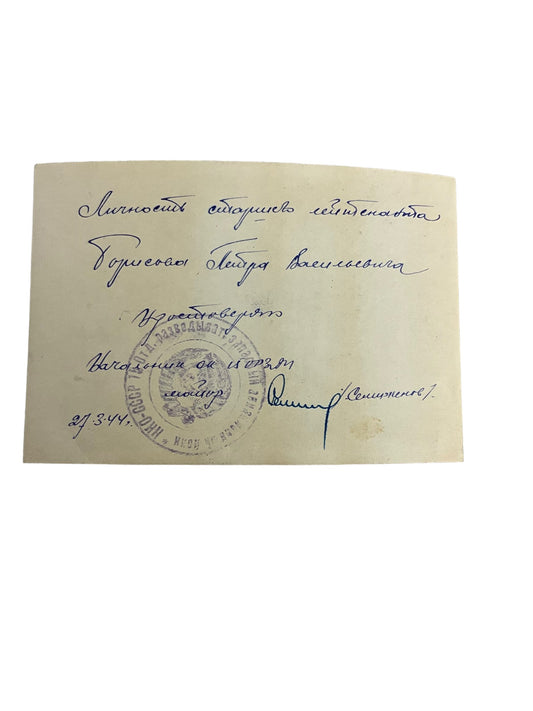 Личность старшего лейтенанта
Борисова Петра Васильевича
удостоверяю
Начальник ОК
майор
/Семиженов/
27.3.44г.
НКО-СССР